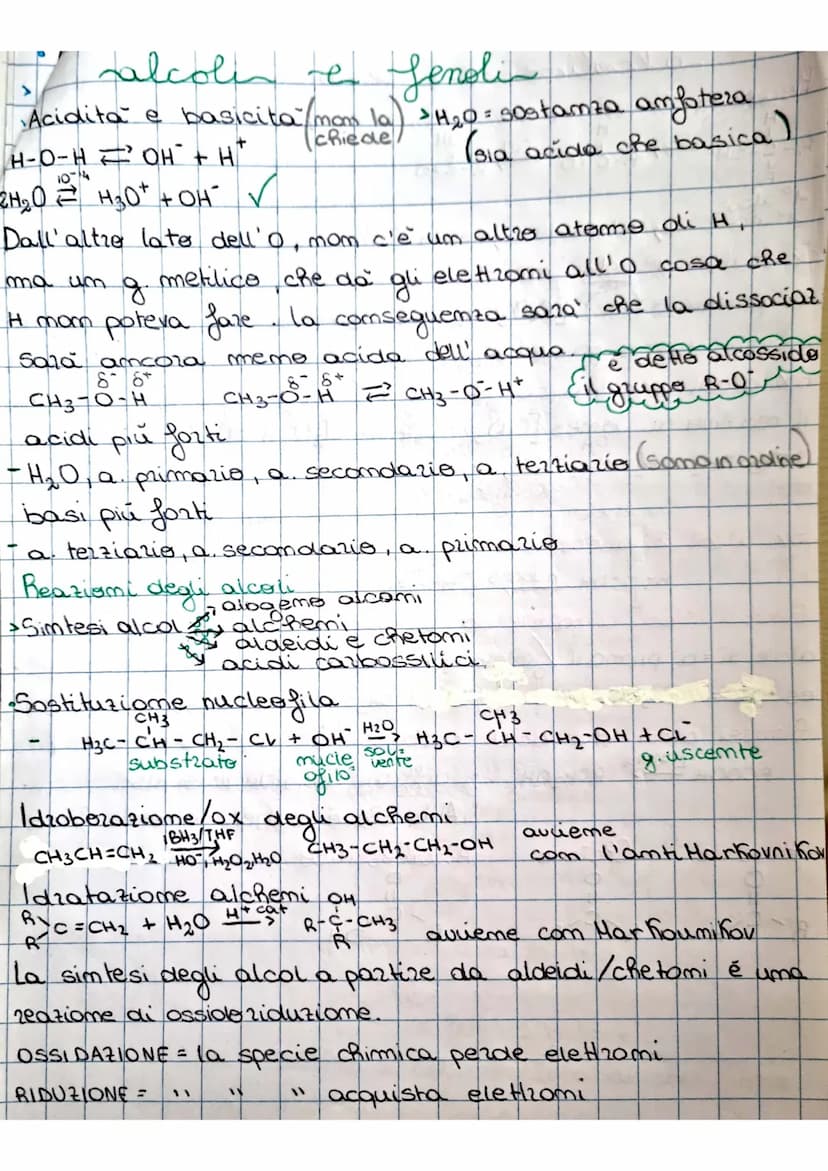 alcoli e fenoli
Acidità e basicità (non la chiede) > H₂O = sostanza anfotera
(sia acida che basica)
H-O-H ⇄ OH⁻ + H⁺
2H₂O ⇄ 10⁻¹⁴ H₃O⁺ + OH⁻ ✓
Dall'altro lato dell'O, non c'è un altro atomo di H,
ma un g. metilico, che dà gli elettroni all'O cosa che
H non poteva fare. la conseguenza sarà che la dissociaz
sarà ancora meno acida dell'acqua.
è detto alcossido
il gruppo R-O⁻
δ⁻ δ⁺
CH₃-O-H
δ⁻ δ⁺
CH₃-O-H ⇄ CH₃-O⁻-H⁺
acidi più forti
- H₂O, a. primario, a. secondario, a. terziario (sono in ordine)
basi più forti
- a. terziario, a. secondario, a. primario
Reazioni degli alcoli
> Sintesi alcol → alogeno alcani
→ alcheni
→ aldeidi e chetoni
→ acidi carbossilici
• Sostituzione nucleofila
CH₃ CH₃
- H₃C-CH-CH₂-Cl + OH⁻ H₂O → H₃C-CH-CH₂-OH + Cl⁻
substrato nucleofilo solvente g. uscente
Idroborazione/ox degli alcheni
CH₃CH=CH₂ 1BH₃/THF → HO⁻, H₂O₂, H₂O CH₃-CH₂-CH₂-OH avviene
con l'anti Markovnikov
Idratazione alcheni
R R >C=CH₂ + H₂O H⁺ cat → R-C-CH₃ OH R avviene con Markovnikov
La sintesi degli alcol a partire da aldeidi/chetoni é una
reazione di ossidoriduzione.
OSSIDAZIONE = la specie chimica perde elettroni
RIDUZIONE = " " " acquista elettroni